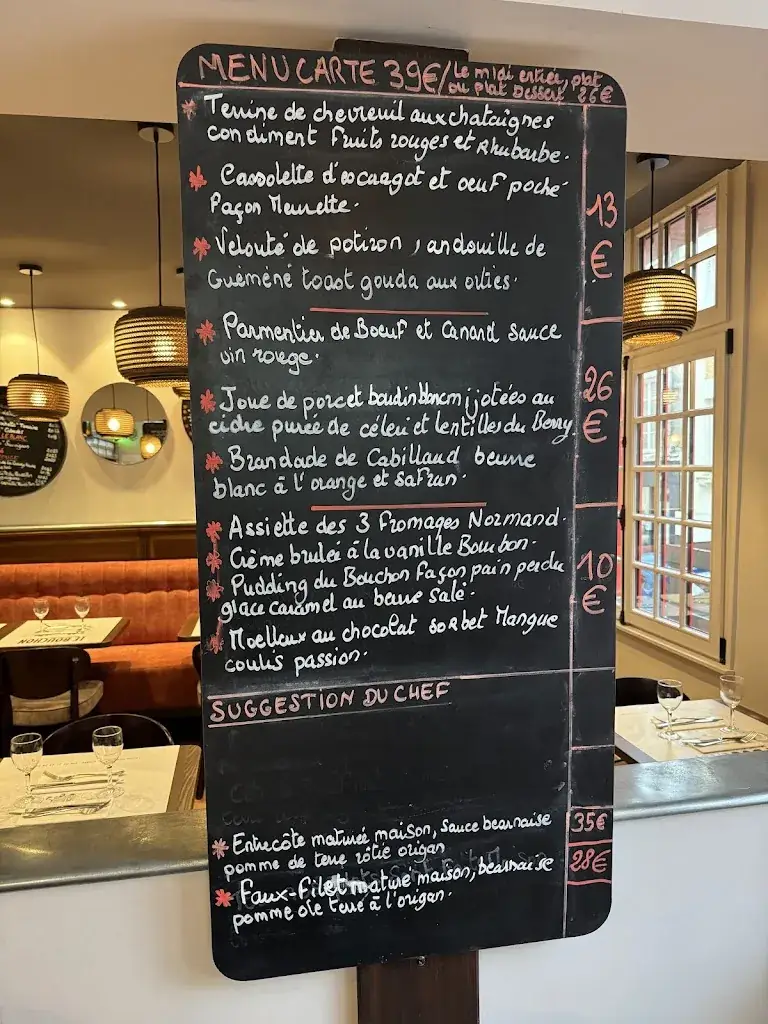 MENU CARTE 39€/Le midi entrée, plat
ou plat Dessert 26€
* Terrine de chevreuil aux chataignes
condiment Fruits rouges et Rhubarbe.
* Cassolette d'escargot et oeuf poché
Façon Meurette.
13
€
* Velouté de potiron, andouille de
Guémené toast gouda aux orties.
* Parmentier de Boeuf et Canard sauce
vin rouge.
* Joue de porc et boudin blanc mijotées au
cidre purée de céleri et lentilles du Berry
26
€
* Brandade de Cabillaud beurre
blanc à l'orange et safran.
* Assiette des 3 Fromages Normand.
* Crème brulée à la vanille Bourbon.
* Pudding du Bouchon façon pain perdu
glace caramel au beurre salé.
10
€
* Moelleux au chocolat sorbet Mangue
coulis passion.
SUGGESTION DU CHEF
* Entrecôte maturée maison, sauce bearnaise
pomme de terre rôtie origan
35€
* Faux-Filet mature maison, bearnaise
pomme de terre à l'origan.
28€
LE BOUCHON